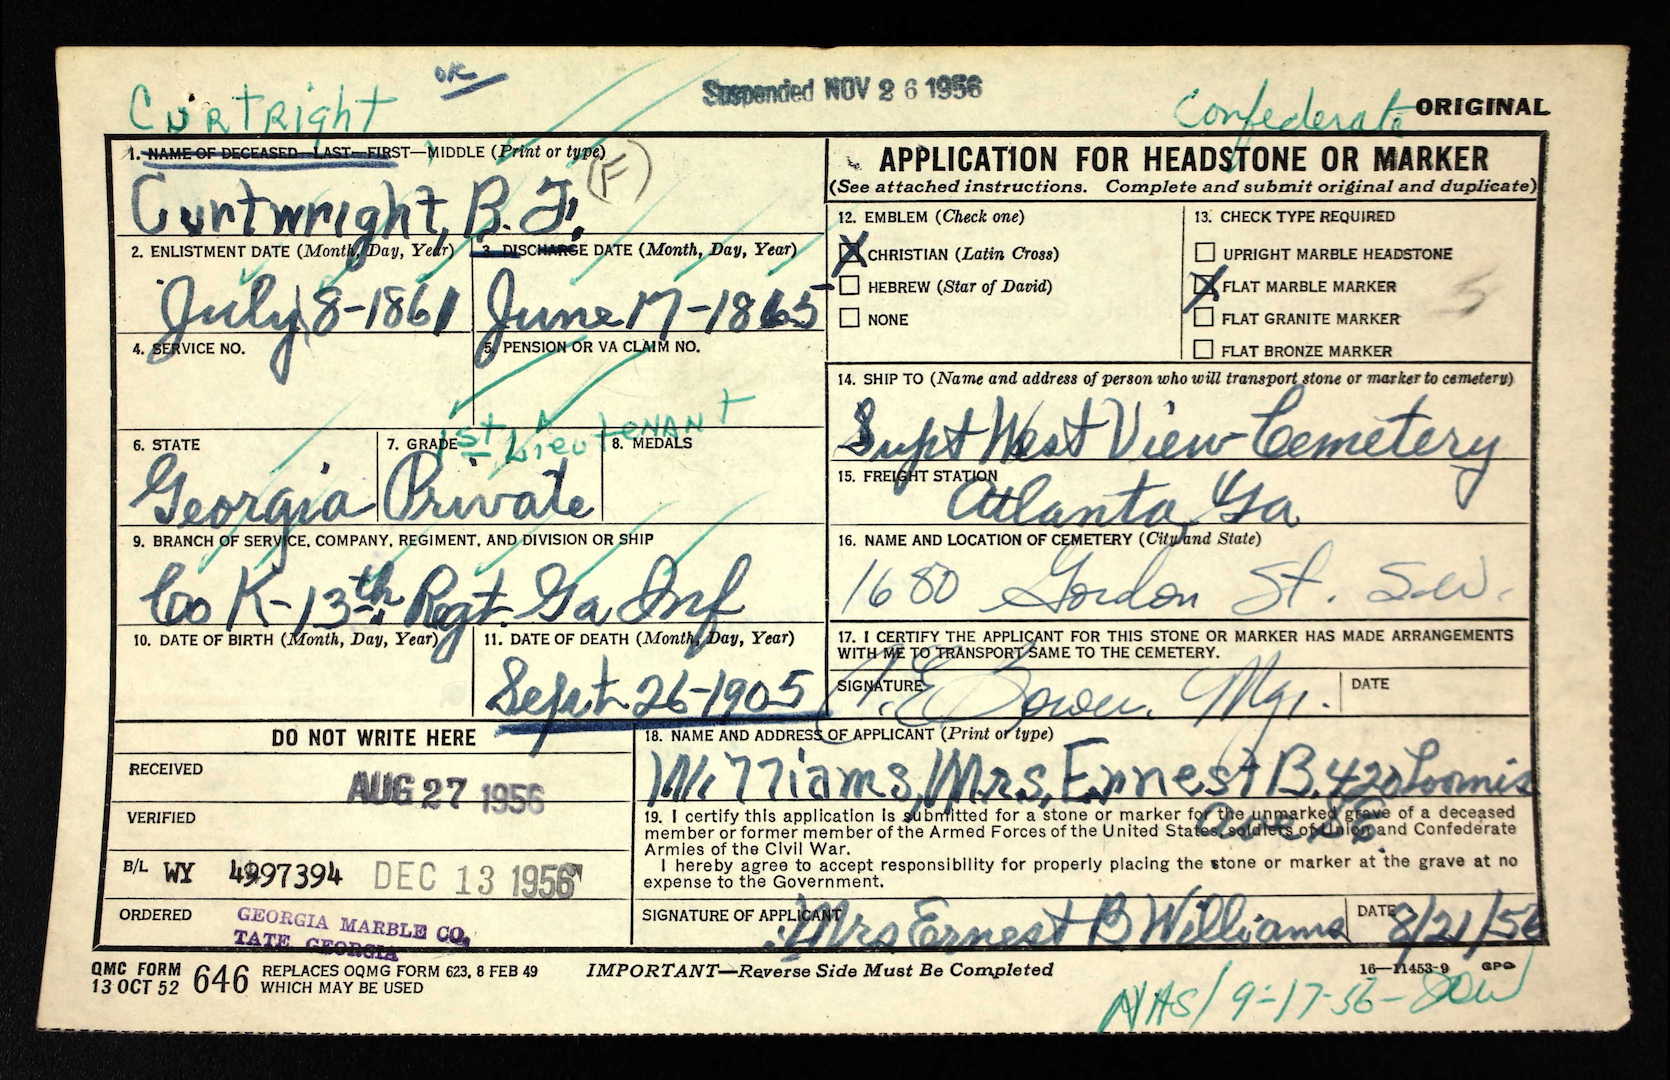 Curtright
OK
Suspended NOV 26 1956
Confederate
ORIGINAL
1. NAME OF DECEASED—LAST—FIRST—MIDDLE (Print or type)
Curtwright, B. F. (F)
2. ENLISTMENT DATE (Month, Day, Year)
July 8-1861
3. DISCHARGE DATE (Month, Day, Year)
June 17-1865
4. SERVICE NO.
5. PENSION OR VA CLAIM NO.
6. STATE
Georgia
7. GRADE
1st Lieutenant
Private
8. MEDALS
9. BRANCH OF SERVICE, COMPANY, REGIMENT, AND DIVISION OR SHIP
Co K-13th Regt. Ga Inf
10. DATE OF BIRTH (Month, Day, Year)
11. DATE OF DEATH (Month, Day, Year)
Sept. 26-1905
DO NOT WRITE HERE
RECEIVED
AUG 27 1956
VERIFIED
B/L WY 4997394 DEC 13 1956
ORDERED
GEORGIA MARBLE CO.
TATE GEORGIA
APPLICATION FOR HEADSTONE OR MARKER
(See attached instructions. Complete and submit original and duplicate)
12. EMBLEM (Check one)
X CHRISTIAN (Latin Cross)
HEBREW (Star of David)
NONE
13. CHECK TYPE REQUIRED
UPRIGHT MARBLE HEADSTONE
X FLAT MARBLE MARKER
FLAT GRANITE MARKER
FLAT BRONZE MARKER
14. SHIP TO (Name and address of person who will transport stone or marker to cemetery)
Supt West View Cemetery
15. FREIGHT STATION
Atlanta, Ga
16. NAME AND LOCATION OF CEMETERY (City and State)
1680 Gordon St. S.W.
17. I CERTIFY THE APPLICANT FOR THIS STONE OR MARKER HAS MADE ARRANGEMENTS
WITH ME TO TRANSPORT SAME TO THE CEMETERY.
SIGNATURE
E Bowen, Mgr.
DATE
18. NAME AND ADDRESS OF APPLICANT (Print or type)
Williams, Mrs, Ernest B. 420 Loomis
Ave SE
19. I certify this application is submitted for a stone or marker for the unmarked grave of a deceased
member or former member of the Armed Forces of the United States, soldiers of Union and Confederate
Armies of the Civil War.
I hereby agree to accept responsibility for properly placing the stone or marker at the grave at no
expense to the Government.
SIGNATURE OF APPLICANT
Mrs Ernest B Williams
DATE
8/21/56
QMC FORM 646
13 OCT 52
REPLACES OQMG FORM 623, 8 FEB 49
WHICH MAY BE USED
IMPORTANT—Reverse Side Must Be Completed
16—11453-9 GPO
NAS/9-17-56-